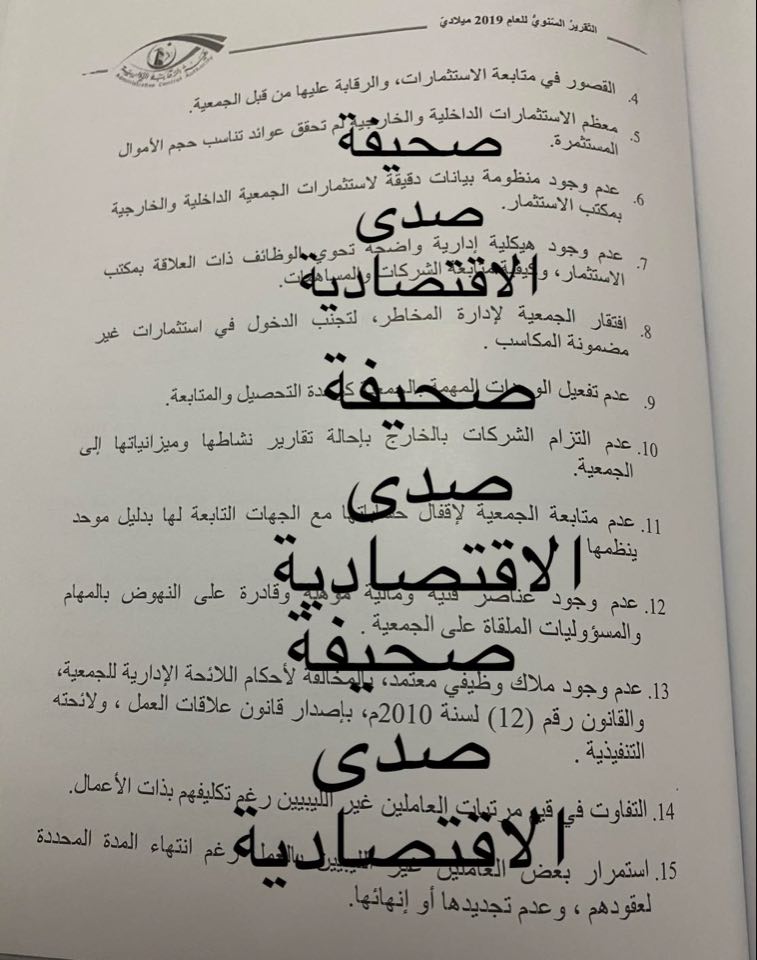 التقرير السنوي للعام 2019 ميلادي
هيئة الرقابة الإدارية
Administrative Control Authority
4. القصور في متابعة الاستثمارات، والرقابة عليها من قبل الجمعية.
5. معظم الاستثمارات الداخلية والخارجية لم تحقق عوائد تناسب حجم الأموال
المستثمرة.
صحيفة
6. عدم وجود منظومة بيانات دقيقة لاستثمارات الجمعية الداخلية والخارجية
بمكتب الاستثمار.
صدى
7. عدم وجود هيكلية إدارية واضحة تحوي الوظائف ذات العلاقة بمكتب
الاستثمار، وكيفية متابعة الشركات والمساهمات.
الاقتصادية
8. افتقار الجمعية لإدارة المخاطر، لتجنب الدخول في استثمارات غير
مضمونة المكاسب .
9. عدم تفعيل الوحدات المهمة بالجمعية كوحدة التحصيل والمتابعة.
صحيفة
10. عدم التزام الشركات بالخارج بإحالة تقارير نشاطها وميزانياتها إلى
الجمعية.
صدى
11. عدم متابعة الجمعية لإقفال حساباتها مع الجهات التابعة لها بدليل موحد
ينظمها
الاقتصادية
12. عدم وجود عناصر فنية ومالية مؤهلة وقادرة على النهوض بالمهام
والمسؤوليات الملقاة على الجمعية .
صحيفة
13. عدم وجود ملاك وظيفي معتمد، بالمخالفة لأحكام اللائحة الإدارية للجمعية،
والقانون رقم (12) لسنة 2010م، بإصدار قانون علاقات العمل ، ولائحته
التنفيذية .
صدى
14. التفاوت في قيم مرتبات العاملين غير الليبيين رغم تكليفهم بذات الأعمال.
الاقتصادية
15. استمرار بعض العاملين غير الليبيين بالعمل رغم انتهاء المدة المحددة
لعقودهم ، وعدم تجديدها أو إنهائها.